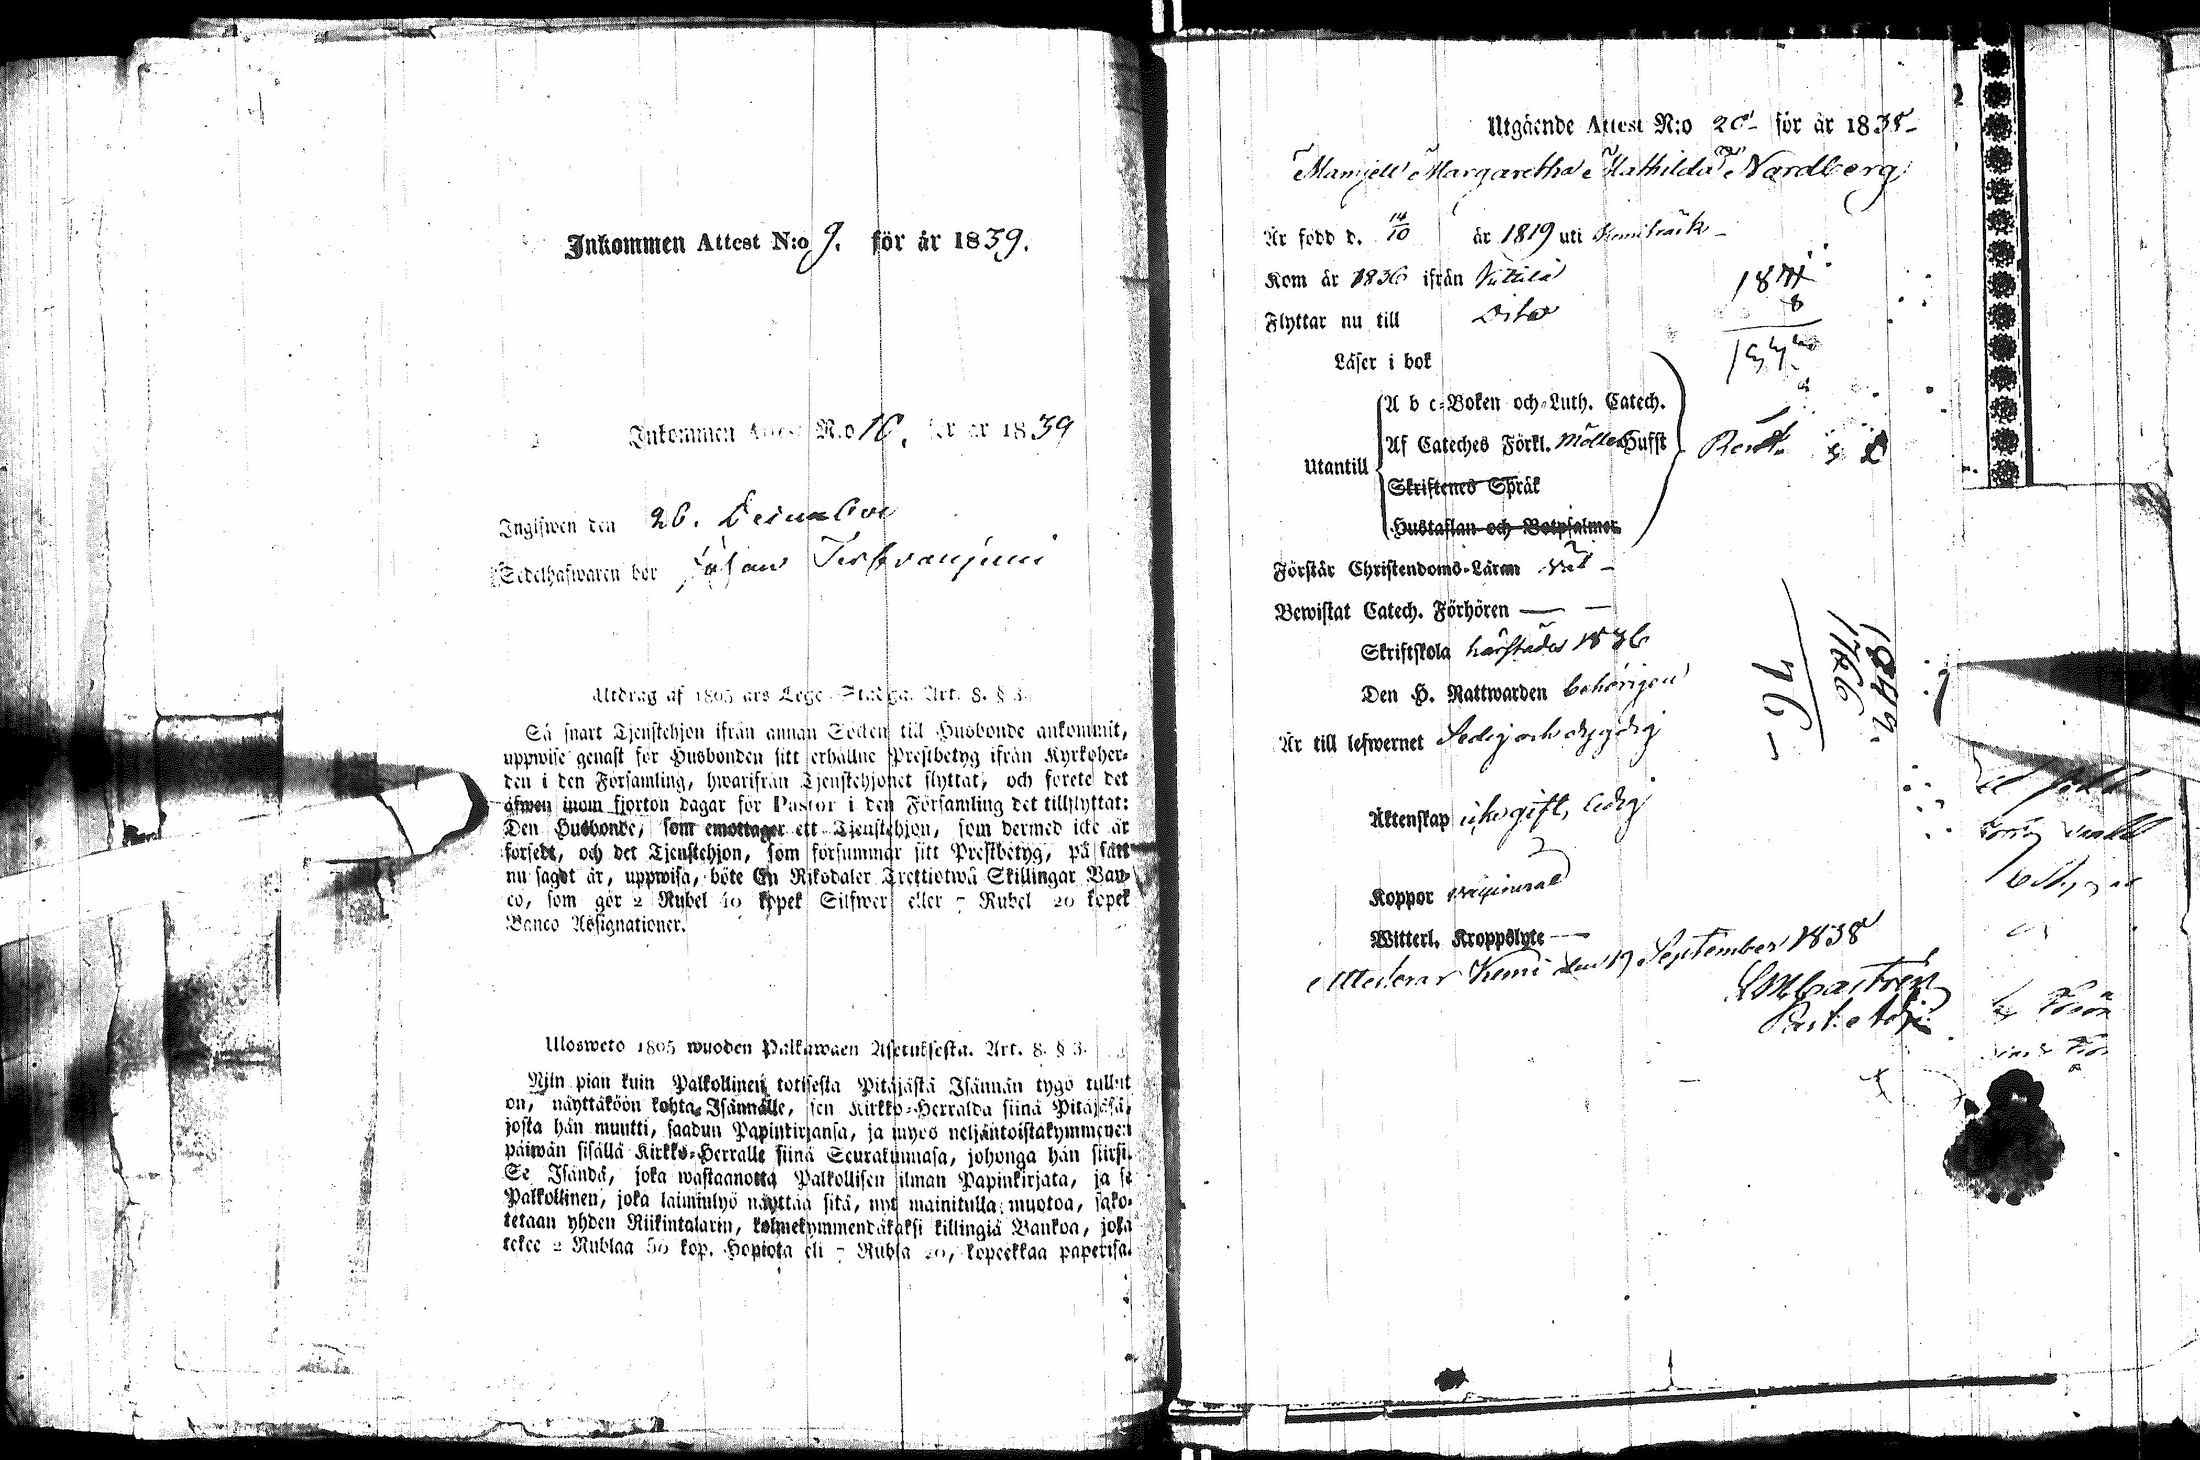 Inkommen Attest N:o 9. för år 1839.
Inkommen Attest N:o 10. för år 1839
Ingifwen den 26. December
Sedelhafwaren bor
Utdrag af 1805 års Lego-Stadga. Art. 8. § 3.
Så snart Tjenstehjon ifrån annan Socken till Husbonde ankommit,
uppwise genast för Husbonden sitt erhållne Prestbetyg ifrån Kyrkoher-
den i den Församling, hwarifrån Tjenstehjonet flyttat, och förete det
äfwen inom fjorton dagar för Pastor i den Församling det tillflyttat:
Den Husbonde, som emottager ett Tjenstehjon, som dermed icke är
försedt, och det Tjenstehjon, som försummar sitt Prestbetyg, på sätt
nu sagdt är, uppwisa, böte En Riksdaler Trettiotwå Skillingar Ban-
co, som gör 2 Rubel 40 kopek Silfwer eller 7 Rubel 20 kopek
Banco Assignationer.
Ulosweto 1805 wuoden Palkawäen Asetuksesta. Art. 8. § 3.
Niin pian kuin Palkollinen toisesta Pitäjästä Isännän tygö tullut
on, näyttäköön kohta Isännälle, sen Kirkko-Herralda siinä Pitäjäsä,
josta hän muutti, saadun Papinkirjansa, ja myös neljäntoistakymmenen
päiwän sisällä Kirkko-Herralle siinä Seurakunnasa, johonga hän siirsi.
Se Isändä, joka wastaanotta Palkollisen ilman Papinkirjata, ja se
Palkollinen, joka laiminlyö näyttää sitä, nyt mainitulla muotoa, sako-
tetaan yhden Riikintalarin, kolmekymmendäkaksi killingiä Bankoa, joka
tekee 2 Rublaa 50 kop. Hopiota eli 7 Rubla 20, kopeekkaa paperisa.
Utgående Attest N:o 20 för år 1838
Mamsell Margaretha Mathilda Nordberg
Är född d. 14/10 år 1819 uti Kemiträsk
Kom år 1836 ifrån
Flyttar nu till Dito
Läser i bok
A b c-Boken och Luth. Catech.
Utantill Af Cateches Förkl. Möllers Husst
Skriftenes Språk
Hustaflan och Botpsalmer.
Förstår Christendoms-Läran väl
Bewistat Catech. Förhören
Skriftskola härstädes 1836
Den H. Nattwarden behörigen
Är till lefwernet Sedig och dygdig
Äktenskap icke gift, ledig
Koppor vaccinerad
Witterl. Kroppslyte
Attesterar Kemi den 19 September 1838
Castrén
1842.
1766
76